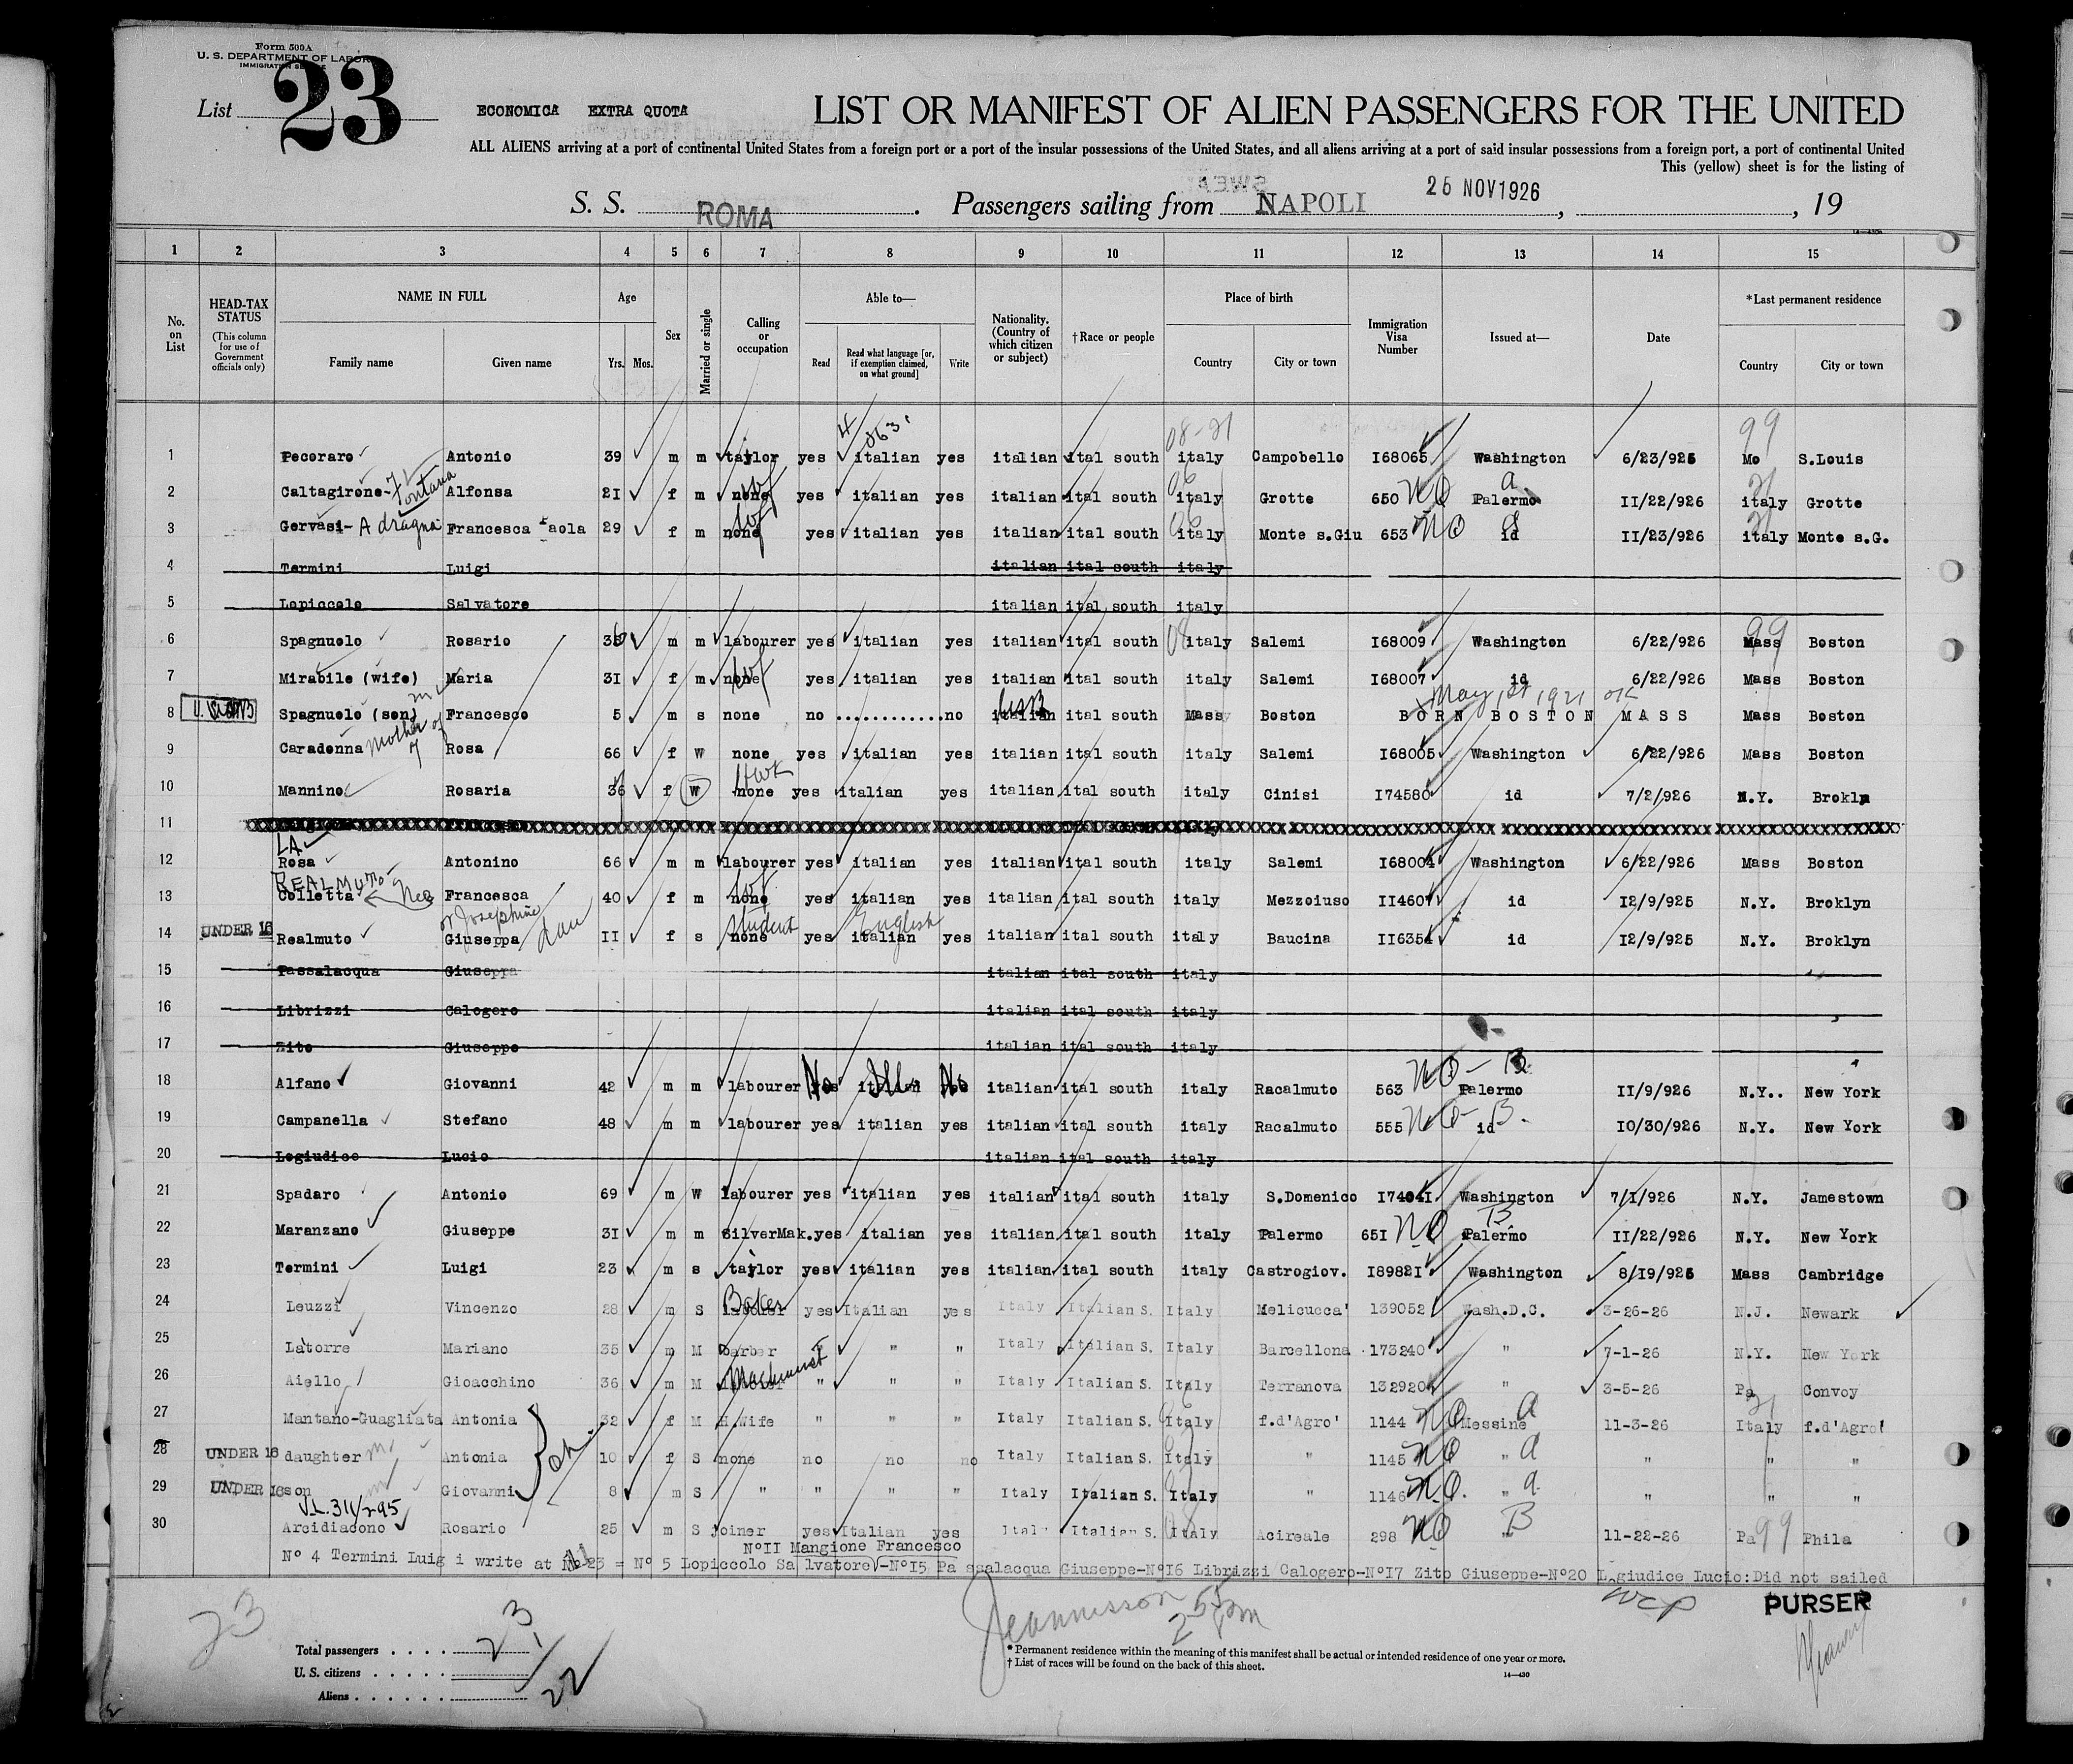 Form 500A
U. S. DEPARTMENT OF LABOR
IMMIGRATION SERVICE
List 23
ECONOMICA EXTRA QUOTA
LIST OR MANIFEST OF ALIEN PASSENGERS FOR THE UNITED
ALL ALIENS arriving at a port of continental United States from a foreign port or a port of the insular possessions of the United States, and all aliens arriving at a port of said insular possessions from a foreign port, a port of continental United
This (yellow) sheet is for the listing of
S. S. ROMA. Passengers sailing from NAPOLI 25 NOV 1926, , 19
14—430
1 2 3 4 5 6 7 8 9 10 11 12 13 14 15
No. on List
HEAD-TAX STATUS
(This column for use of Government officials only)
NAME IN FULL
Family name Given name
Age
Yrs. Mos.
Sex
Married or single
Calling or occupation
Able to—
Read Read what language [or, if exemption claimed, on what ground] Write
Nationality. (Country of which citizen or subject)
†Race or people
Place of birth
Country City or town
Immigration Visa Number
Issued at—
Date
*Last permanent residence
Country City or town
08-21 99
1 Pecoraro Antonio 39 m m taylor yes italian yes italian ital south italy Campobello I68065 Washington 6/23/926 Mo S.Louis
2 Caltagirone- Fontana Alfonsa 2I f m none wf yes italian yes italian ital south italy Grotte 650 NQ Palermo a II/22/926 italy Grotte
3 Gervasi- Adragna Francesca Paola 29 f m none wf yes italian yes italian ital south italy Monte s.Giu 653 NQ id a II/23/926 italy Monte s.G.
4 Termini Luigi italian ital south italy
5 Lopiccolo Salvatore italian ital south italy
6 Spagnuolo Rosario 36 m m labourer yes italian yes italian ital south italy Salemi I68009 Washington 6/22/926 Mass Boston
7 Mirabile (wife) Maria 3I f m none wf yes italian yes italian ital south italy Salemi I68007 id 6/22/926 Mass Boston
May 1st 1921 ok
8 Spagnuolo (son) Francesco 5 m s none no .............no italian USB ital south Mass Boston BORN BOSTON MASS Mass Boston
9 Caradonna Mother of 7 Rosa 66 f W none yes italian yes italian ital south italy Salemi I68005 Washington 6/22/926 Mass Boston
10 Mannino Rosaria 36 f W none Hwk yes italian yes italian ital south italy Cinisi I74580 id 7/2/926 N.Y. Brokly
11
LA
12 Rosa Antonino 66 m m labourer yes italian yes italian ital south italy Salemi I68004 Washington 6/22/926 Mass Boston
REALMUTO-
13 Colletta Nee Francesca 40 f m none wf yes italian yes italian ital south italy Mezzoiuso II460 id I2/9/925 N.Y. Broklyn
or Josephine
14 UNDER 16 Realmuto Giuseppa dau II f s none student yes italian English yes italian ital south italy Baucina II6354 id I2/9/925 N.Y. Broklyn
15 Passalacqua Giuseppa italian ital south italy
16 Librizzi Calogero italian ital south italy
17 Zito Giuseppe italian ital south italy
NQ - B
18 Alfano Giovanni 42 m m labourer No italian No italian ital south italy Racalmuto 563 Palermo II/9/926 N.Y.. New York
19 Campanella Stefano 48 m m labourer yes italian yes italian ital south italy Racalmuto 555 NQ- id B- IO/30/926 N.Y. New York
20 Logiudice Lucio italian ital south italy
21 Spadaro Antonio 69 m W labourer yes italian yes italian ital south italy S.Domenico I7404I Washington 7/I/926 N.Y. Jamestown
22 Maranzano Giuseppe 3I m m SilverMak. yes italian yes italian ital south italy Palermo 65I NQ Palermo B II/22/926 N.Y. New York
23 Termini Luigi 23 m s taylor yes italian yes italian ital south italy Castrogiov. I8982I Washington 8/I9/926 Mass Cambridge
24 Leuzzi Vincenzo 28 m S Baker yes Italian yes Italy Italian S. Italy Melicucca' 139052 Wash.D.C. 3-26-26 N.J. Newark
25 Latorre Mariano 35 m M Barber " " " Italy Italian S. Italy Barcellona 173240 " 7-1-26 N.Y. New York
26 Aiello Gioacchino 36 m M Machinist " " " Italy Italian S. Italy Terranova 132920 " 3-5-26 Pa Convoy
27 Mantano-Guagliata Antonia 32 f M H.Wife " " " Italy Italian S. Italy f.d'Agro' 1144 NQ Messine a 11-3-26 Italy f.d'Agro'
28 UNDER 16 daughter Antonia 10 f S none no no no Italy Italian S. Italy " 1145 NQ " a " " "
29 UNDER 16 son Giovanni 8 m S " " " " Italy Italian S. Italy " 1146 N.Q. " a " " "
V.L. 311/295
30 Arcidiacono Rosario 25 m S joiner yes Italian yes Italy Italian S. Italy Acireale 298 NQ " B 11-22-26 Pa 99 Phila
N°II Mangione Francesco
N° 4 Termini Luig i write at N° 23 = N° 5 Lopiccolo Sa lvatore -N°I5 Pa ssalacqua Giuseppe-N°I6 Librizzi Calogero-N°I7 Zito Giuseppe-N°20 Logiudice Lucio:Did not sailed
23
PURSER
Total passengers . . . . 23
U. S. citizens . . . . . 1
Aliens . . . . . . 22
* Permanent residence within the meaning of this manifest shall be actual or intended residence of one year or more.
† List of races will be found on the back of this sheet.
14—430